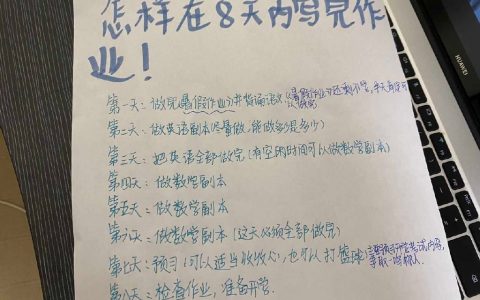 怎样在8天内写完作
业！
第一天：做完暑假作业，并背诵语文
第二天：做英语副本(尽量做，能做多少做多少)
第三天：把英语全部做完(有空的时间可以做数学副本)
第四天：做数学副本
第五天：做数学副本
第六天：做数学副本(这天必须全部做完)
第七天：预习(可以适当收收心，也可以打篮球)
第八天：检查作业，准备开学.
HUAWEI